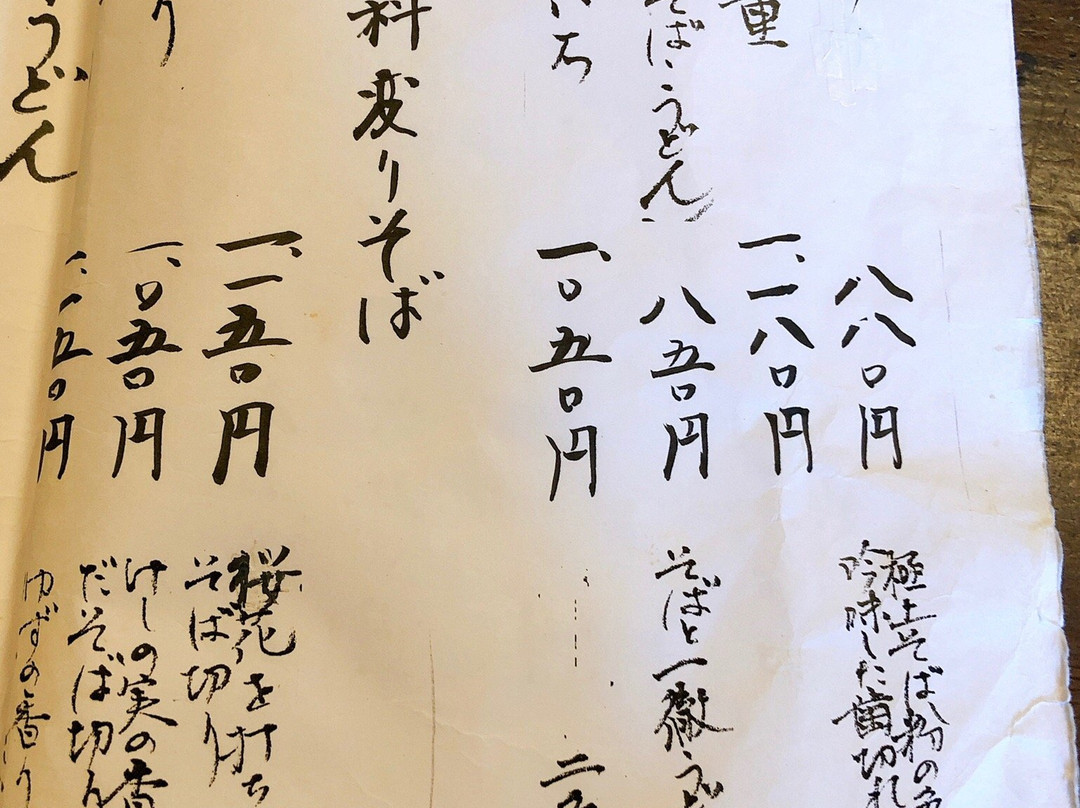 八八〇円
極上そば粉の
吟味した歯切れ
重
一、一八〇円
そば、うどん
八五〇円
そばと一徹うど
一、〇五〇円
二
料
変りそば
一、一五〇円
桜花を打ち
そば切り
り
一、〇五〇円
けしの実の香
だそば切
うどん
一、一五〇円
ゆずの香り